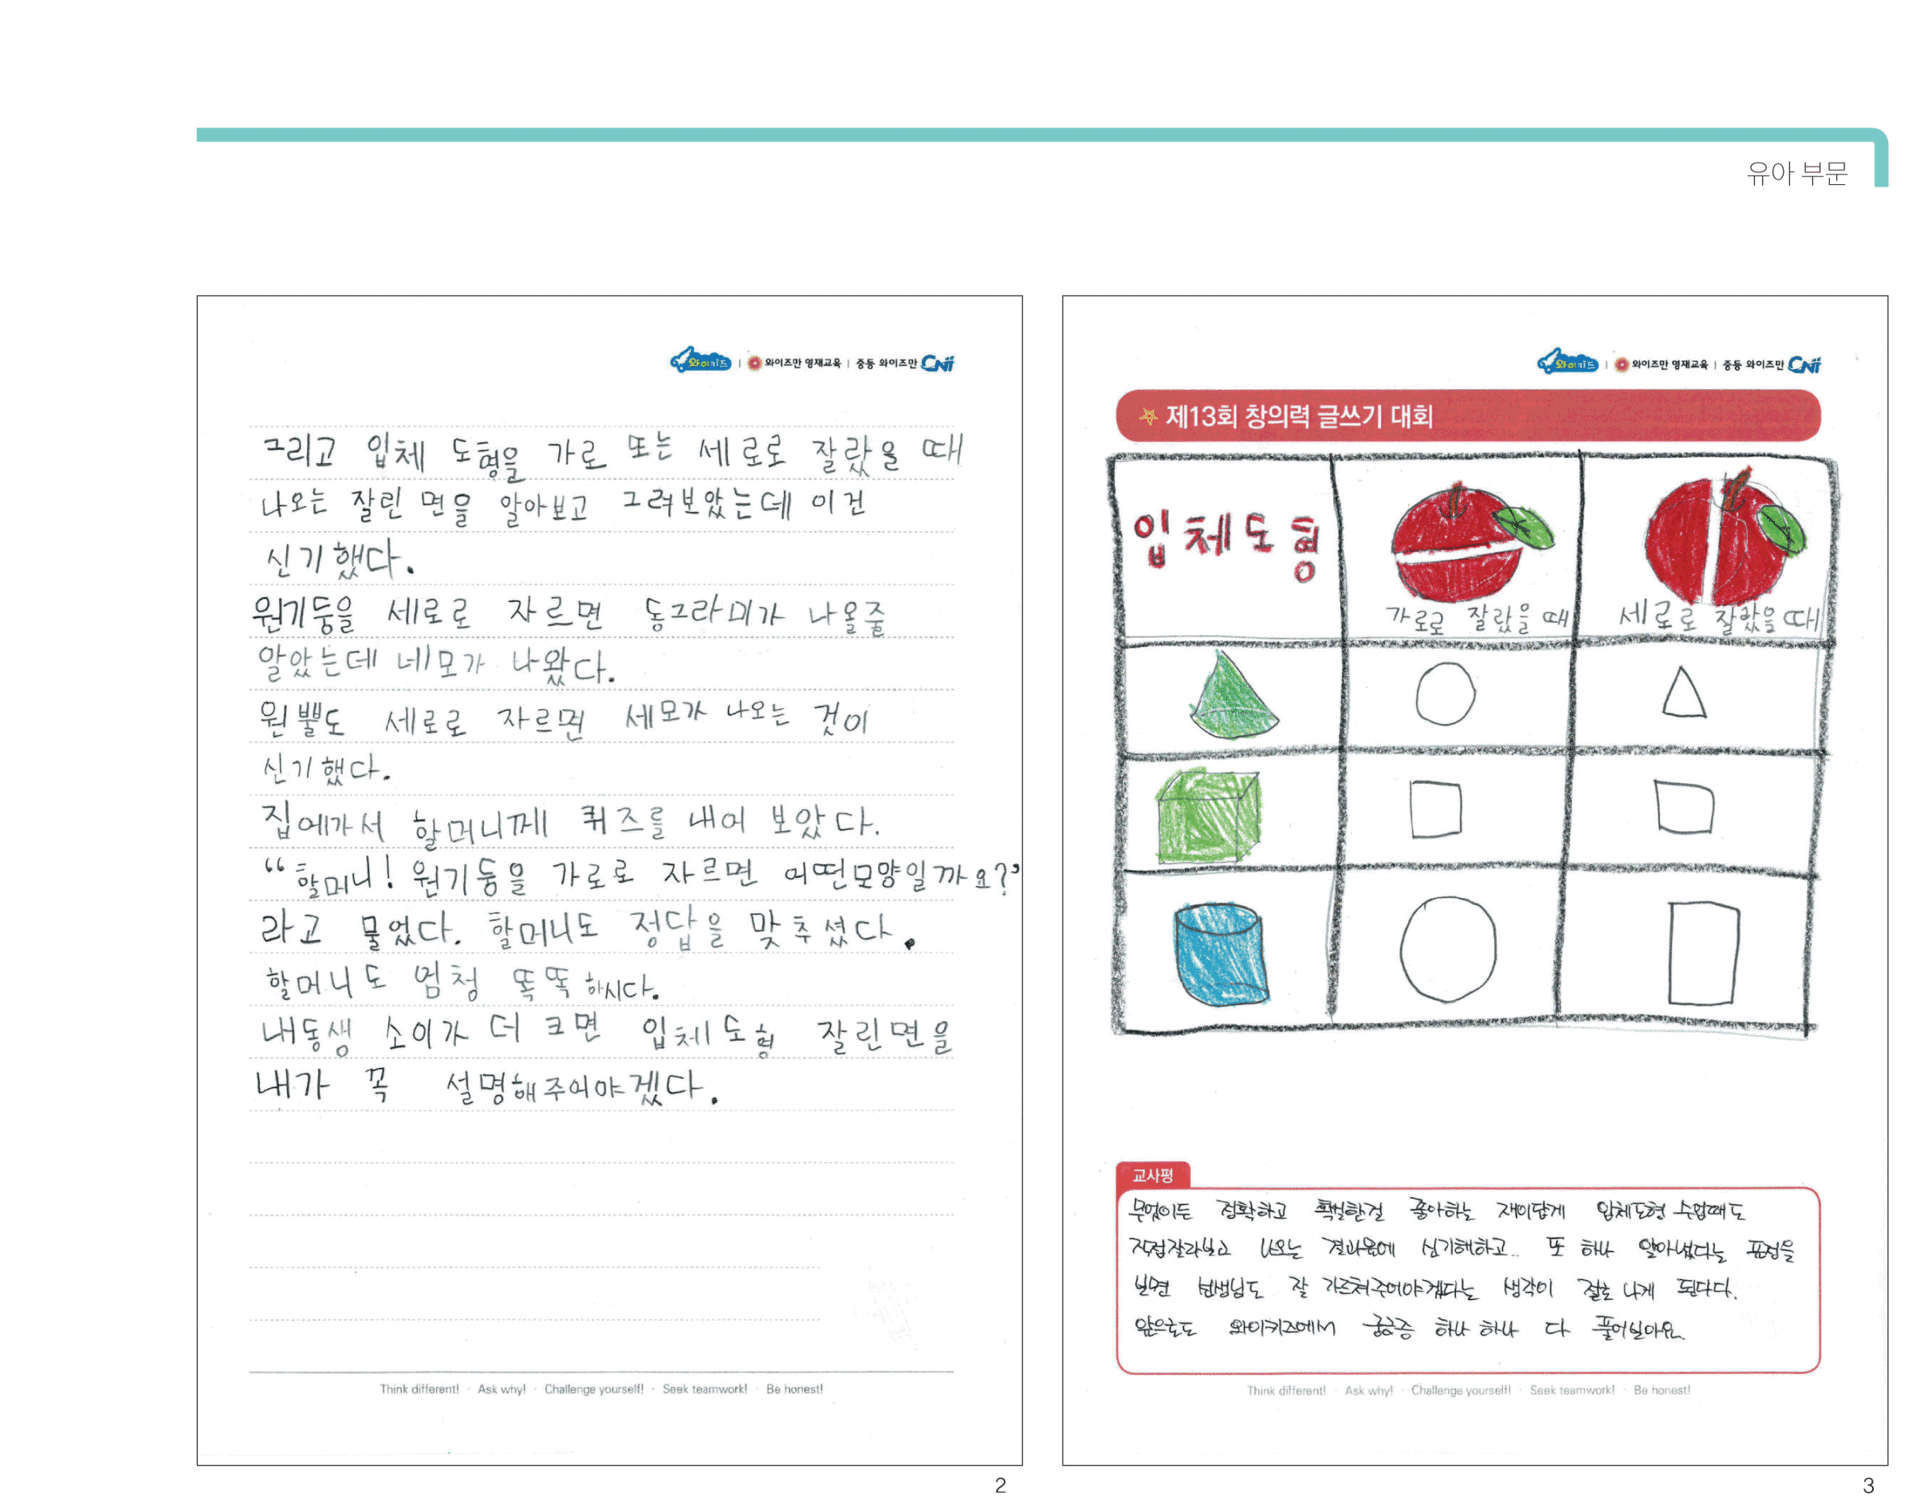 유아 부문
와이키즈 | 와이즈만 영재교육 | 중등 와이즈만 CNii
그리고 입체 도형을 가로 또는 세로로 잘랐을 때
나오는 잘린 면을 알아보고 그려보았는데 이건
신기했다.
원기둥을 세로로 자르면 동그라미가 나올줄
알았는데 네모가 나왔다.
원뿔도 세로로 자르면 세모가 나오는 것이
신기했다.
집에가서 할머니께 퀴즈를 내어 보았다.
“할머니! 원기둥을 가로로 자르면 어떤모양일까요?”
라고 물었다. 할머니도 정답을 맞추셨다.
할머니도 엄청 똑똑하시다.
내동생 소이가 더 크면 입체도형 잘린면을
내가 꼭 설명해주어야겠다.
Think different! · Ask why! · Challenge yourself! · Seek teamwork! · Be honest!
2
와이키즈 | 와이즈만 영재교육 | 중등 와이즈만 CNii
제13회 창의력 글쓰기 대회
입체도형
가로로 잘랐을 때
세로로 잘랐을 때
교사평
무엇이든 정확하고 확실한걸 좋아하는 재이답게 입체도형 수업때도
직접잘라보고 나오는 결과물에 신기해하고.. 또 하나 알아냈다는 표정을
보면 선생님도 잘 가르쳐주어야겠다는 생각이 절로 나게 된답니다.
앞으로도 와이키즈에서 궁금증 하나 하나 다 풀어보아요.
Think different! · Ask why! · Challenge yourself! · Seek teamwork! · Be honest!
3